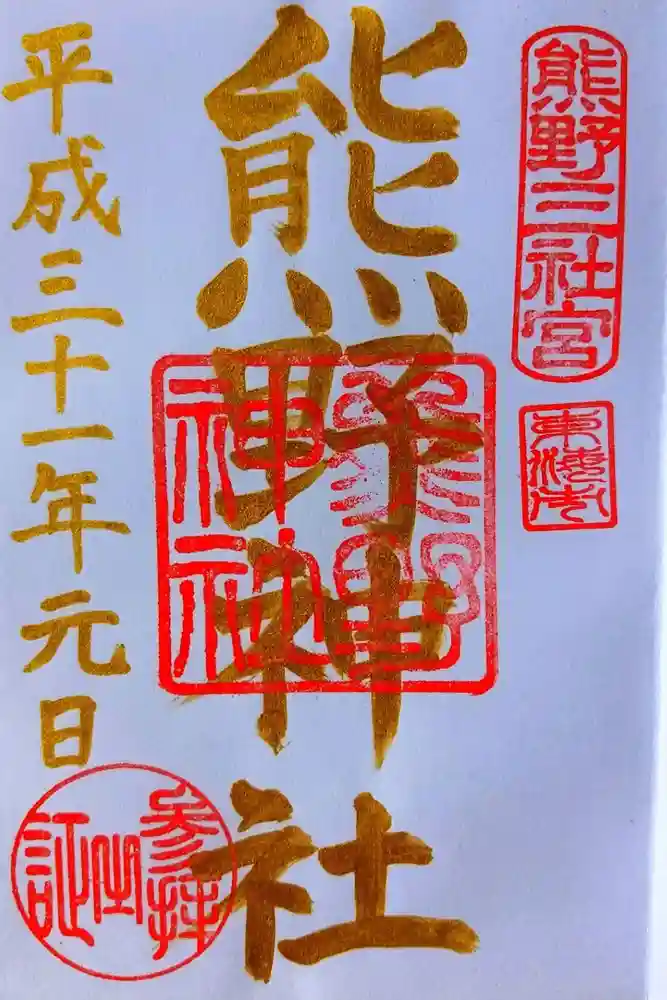 熊野三社宮
東浅草
熊野神社
熊野
神社
平成三十一年元日
参拝
之
証